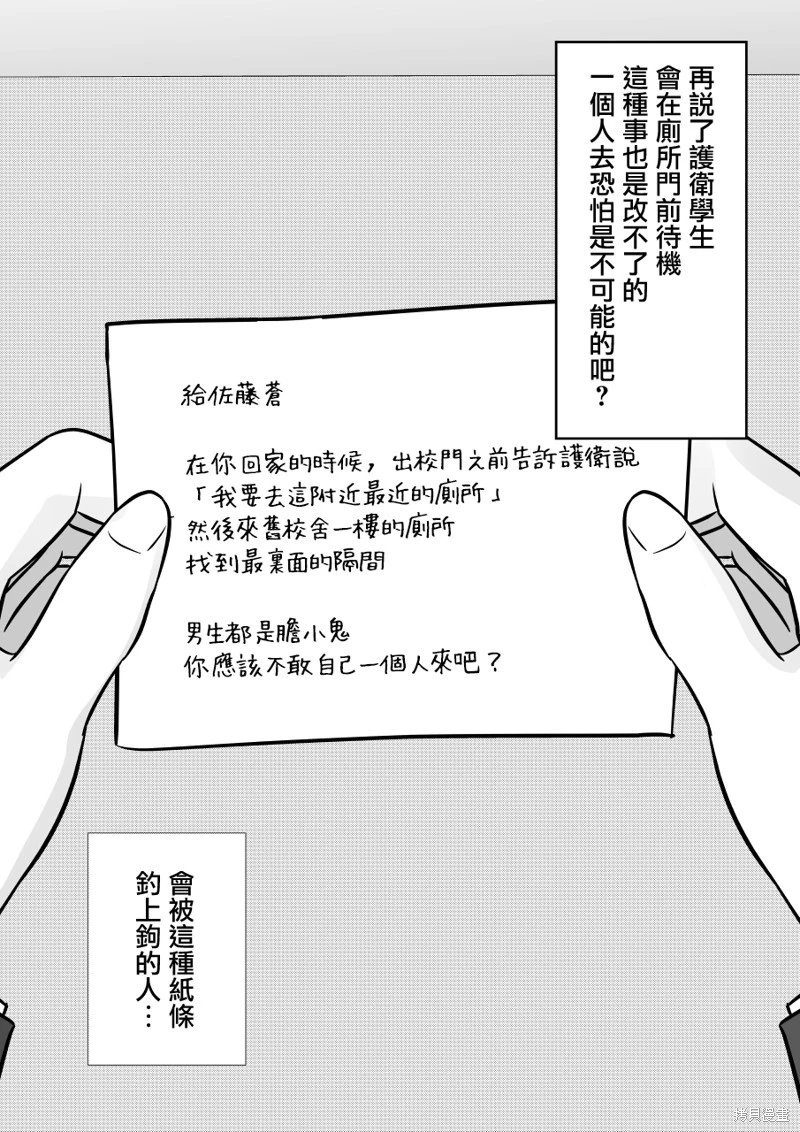 再說了護衛學生
會在廁所門前待機
這種事也是改不了的
一個人去恐怕是不可能的吧？
給佐藤蒼
在你回家的時候，出校門之前告訴護衛說
「我要去這附近最近的廁所」
然後來舊校舍一樓的廁所
找到最裏面的隔間
男生都是膽小鬼
你應該不敢自己一個人來吧？
會被這種紙條
釣上鉤的人…
拷貝漫畫